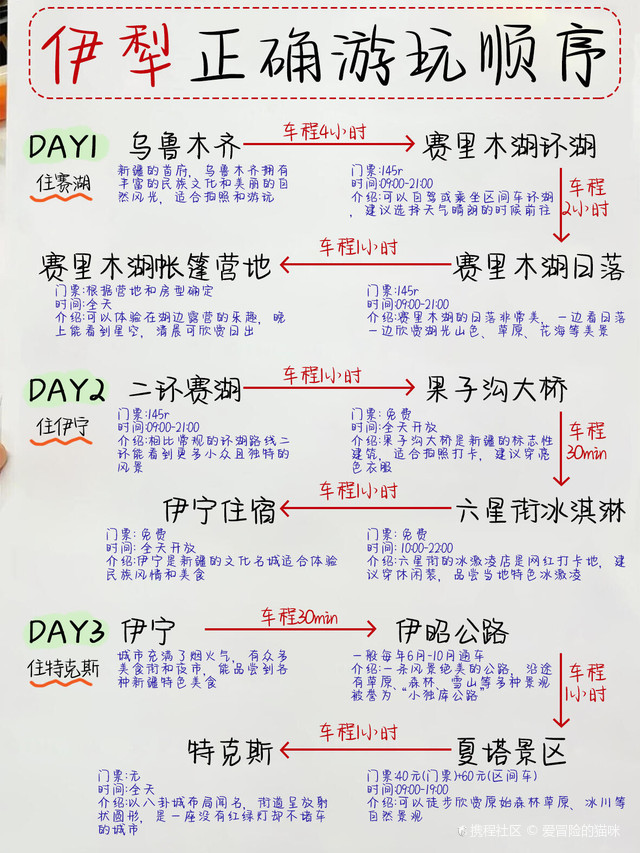 伊犁正确游玩顺序
DAY1 乌鲁木齐 车程4小时 赛里木湖环湖
住赛湖
新疆的首府，乌鲁木齐拥有
丰富的民族文化和美丽的自
然风光，适合拍照和游玩
门票:145r
时间:09:00-21:00
介绍:可以自驾或乘坐区间车环湖
，建议选择天气晴朗的时候前往
车程
2小时
赛里木湖帐篷营地 车程1小时 赛里木湖日落
门票:根据营地和房型确定
时间:全天
介绍:可以体验在湖边露营的乐趣，晚
上能看到星空，清晨可欣赏日出
门票:145r
时间:09:00-21:00
介绍:赛里木湖的日落非常美，一边看日落
一边欣赏湖光山色、草原、花海等美景
DAY2 二环赛湖 车程1小时 果子沟大桥
住伊宁
门票:145r
时间:09:00-21:00
介绍:相比常规的环湖路线二
环能看到更多小众且独特的
风景
门票: 免费
时间:全天开放
介绍:果子沟大桥是新疆的标志性
建筑，适合拍照打卡，建议穿亮
色衣服
车程
30min
伊宁住宿 车程1小时 六星街冰淇淋
门票: 免费
时间: 全天开放
介绍:伊宁是新疆的文化名城适合体验
民族风情和美食
门票: 免费
时间: 10:00-22:00
介绍:六星街的冰激凌店是网红打卡地，建
议穿休闲装，品尝当地特色冰激凌
DAY3 伊宁 车程30min 伊昭公路
住特克斯
城市充满了烟火气，有众多
美食街和夜市，能品尝到各
种新疆特色美食
一般每年6月-10月通车
介绍:一条风景绝美的公路，沿途
有草原、森林、雪山等多种景观
被誉为“小独库公路”
车程
1小时
特克斯 车程1小时 夏塔景区
门票:无
时间:全天
介绍:以八卦城布局闻名，街道呈放射
状圆形，是一座没有红绿灯却不堵车
的城市
门票40元(门票)+60元(区间车)
时间:09:00-19:00
介绍:可以徒步欣赏原始森林草原、冰川等
自然景观
携程社区 © 爱冒险的猫咪